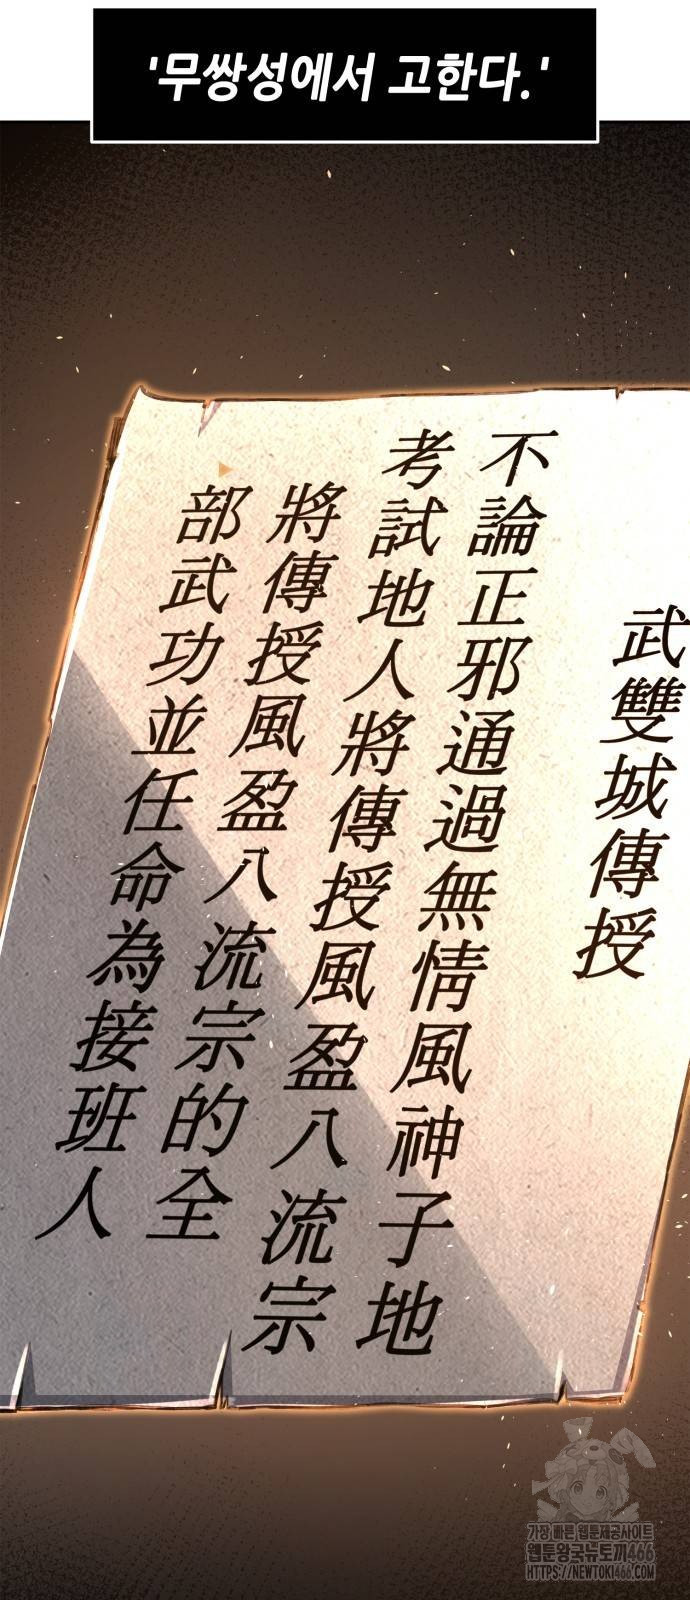 '무쌍성에서 고한다.'
武雙城傳授
不論正邪通過無情風神子地
考試地人將傳授風盈八流宗
將傳授風盈八流宗的全
部武功並任命為接班人
가장 빠른 웹툰제공사이트
웹툰왕국뉴토끼466
HTTPS://NEWTOKI466.COM